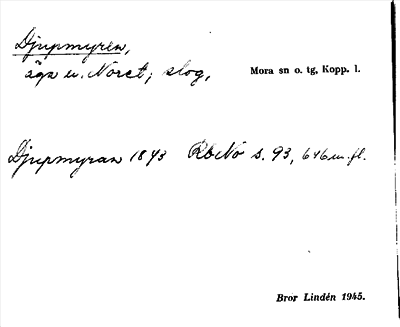 Djupmyren,
äga u. Noret; slog, Mora sn o. tg, Kopp. l.
Djupmyran 1843 RbNo s. 93, 646 m. fl.
Bror Lindén 1945.